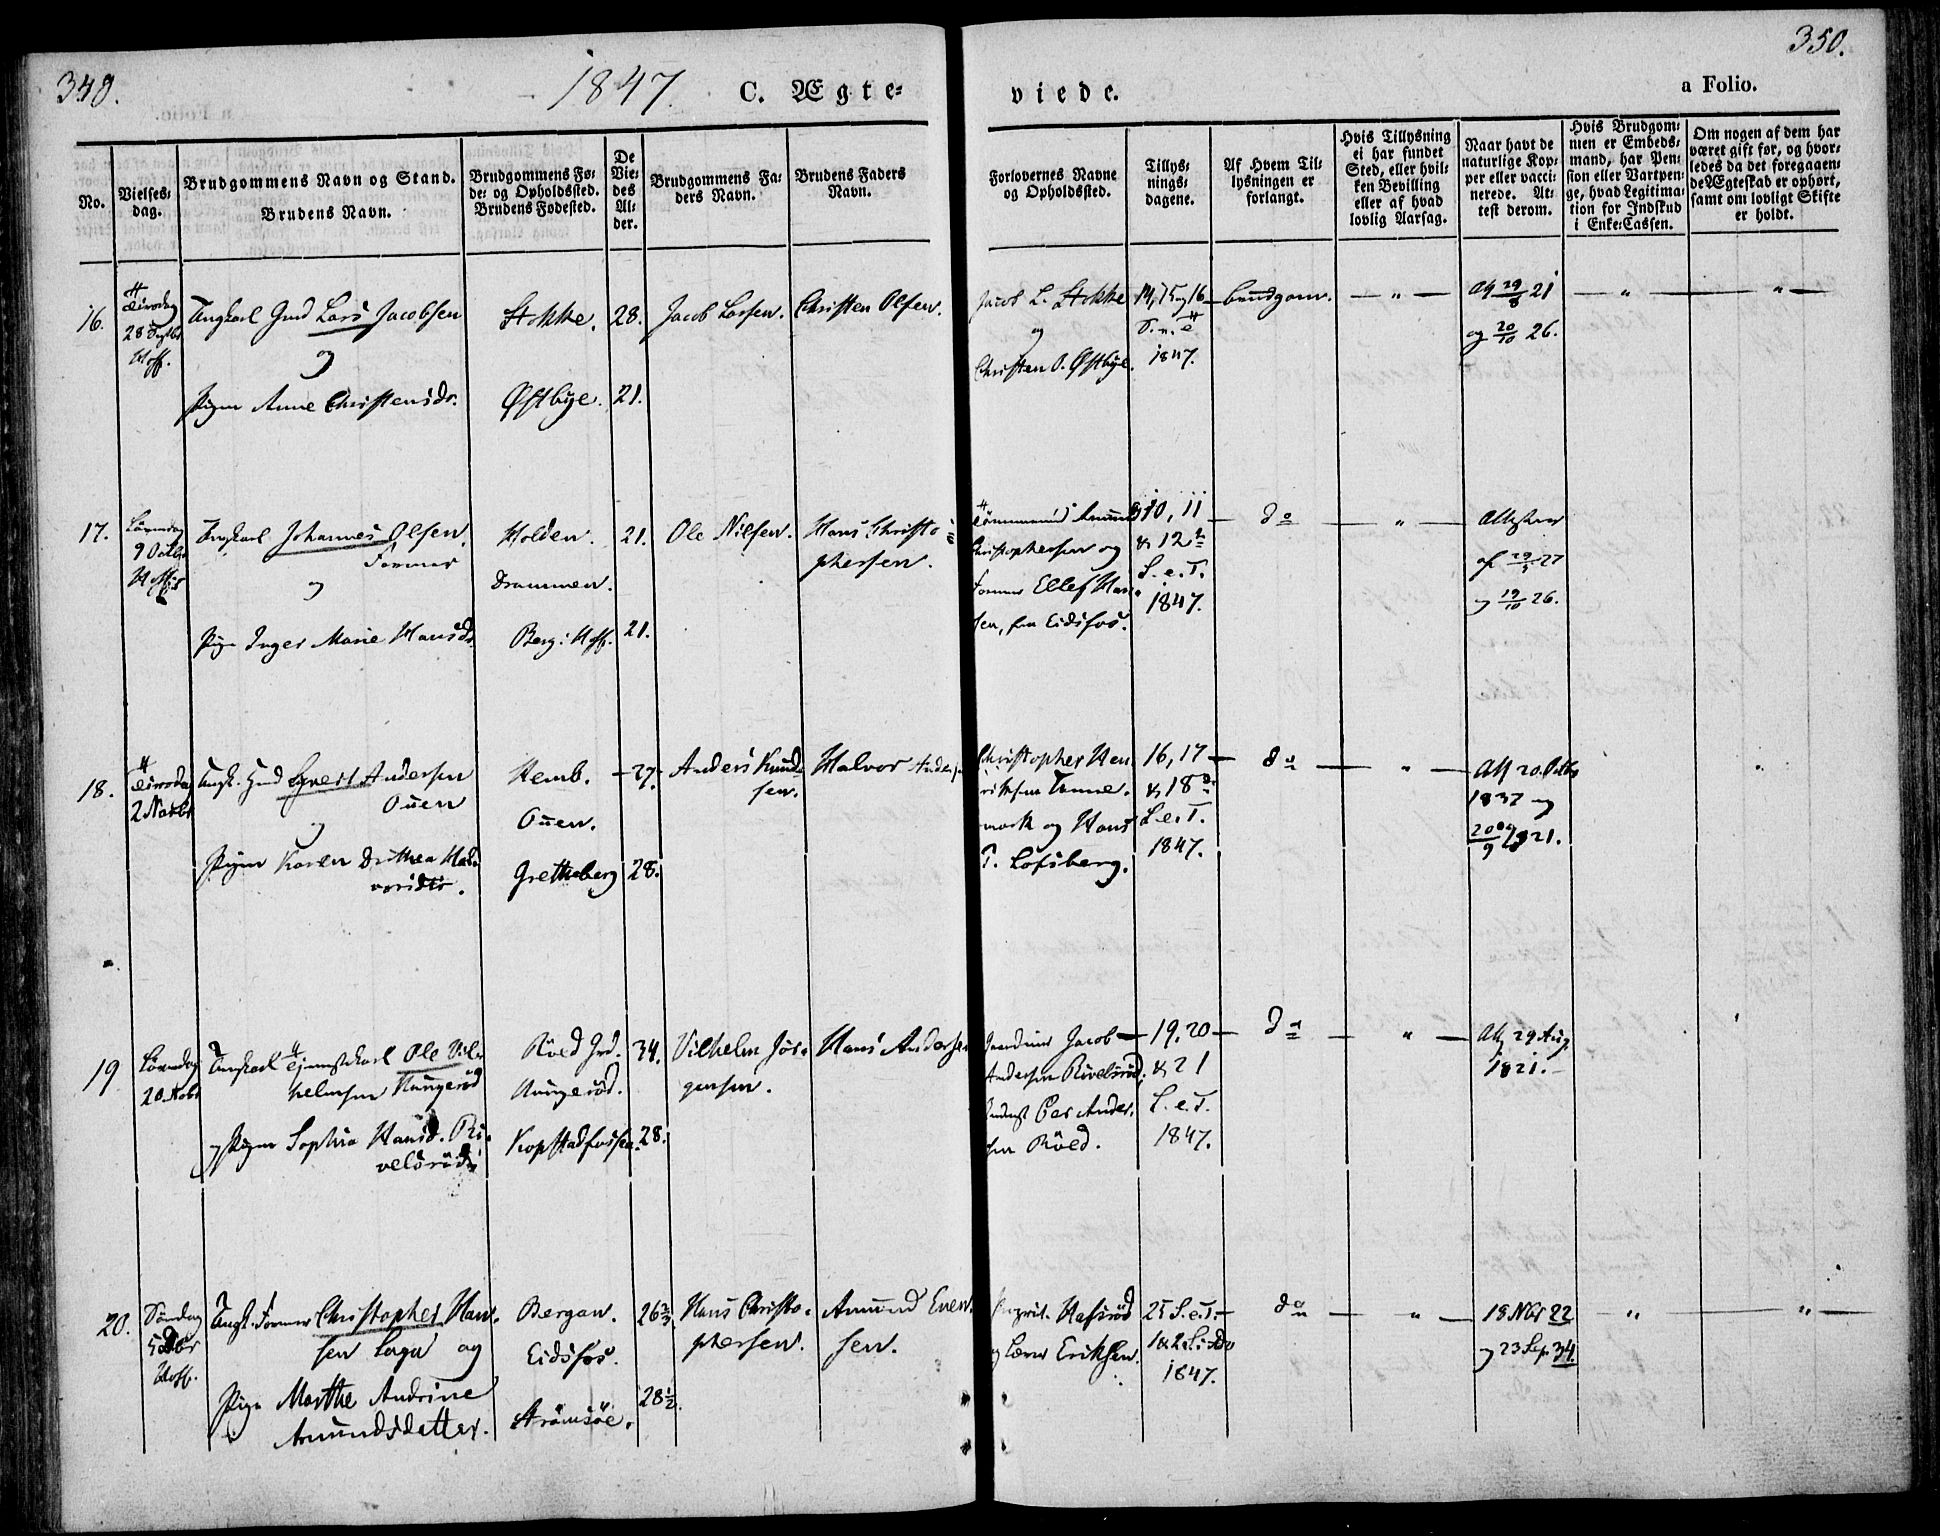 348.
1847.
C. Ægte-
viede.
a Folio.
350.
No.
Vielses-
dag.
Brudgommens Navn og Stand.
Brudens Navn.
Brudgommens Fø-
de- og Opholdssted.
Brudens Fødested.
De
Vie-
des
Al-
der.
Brudgommens Fa-
ders Navn.
Brudens Faders
Navn.
Forlovernes Navne
og Opholdssted.
Tillys-
nings-
dagene.
Af Hvem Til-
lysningen er
forlangt.
Hvis Tillysning
ei har fundet
Sted, eller hvil-
ken Bevilling
eller af hvad
lovlig Aarsag.
Naar havt de
naturlige Kop-
per eller vacci-
nerede. At-
test derom.
Hvis Brudgom-
men er Embeds-
mand, har Pen-
sion eller Vartpen-
ge, hvad Legitima-
tion for Indskud
i Enke-Cassen.
Om nogen af dem har
været gift før, og hvor-
ledes da det foregaaen-
de Ægteskab er ophørt,
samt om lovligt Skifte
er holdt.
16.
28 Septbr
Hoff.
Ungkarl Gmd Lars Jacobsen
og
Pigen Anne Christensdr.
Stokke.
Østbye.
28.
21.
Jacob Larsen.
Christen Olsen.
Jacob L. Stokke
og
Christen O. Østbye.
14, 15 og 16
1847.
Brudgom.
Att 29/8 21
og 20/10 26.
17.
Løverdag
9 Octbr
Hoff
Ungkarl Johannes Olsen,
Former
og
Pige Inger Marie Hansdr.
Holden.
Drammen.
Berg i Hoff.
21.
21.
Ole Nilsen.
Hans Christo-
phersen.
Christophersen og
Former Ellef Han-
sen, fra Eidsfos.
10, 11
& 12
S. e. T.
1847.
do
Attester
af 29/9 27
og 19/10 26.
18.
2 Novbr
Ungk. Gmd Evert Andersen
Ouen
og
Pigen Karen Dorthea Hal-
vorsdtr.
Hemb.
Ouen.
Gretheberg
27.
28.
Anders Knud-
sen.
Halvor Andersen
Christopher Hen-
riksen Tanne-
mark og Hans
T. Lofsberg.
16, 17
& 18
S. e. T.
1847.
do
Att 20. Octbr
1837 og
20/9 1821.
19
Løverdag
20. Novbr
Ungkarl Tjenestekarl Ole Vil-
helmsen Kungerød
og Pigen Sophia Hansd. Ri-
velsrød
Røed Grd.
Kungerød.
Kopstadfossen.
34.
28.
Vilhelm Jør-
gensen.
Hans Andersen
Gaardmd Jacob
Andersen Rivelsrød,
Per Ander-
sen Røed.
19. 20
& 21
S. e. T.
1847.
do
Att 29 Aug
1821.
20.
Søndag
5 Dcbr
Hoff.
Ungk. Former Christopher Han-
sen Laga og
Pige Marthe Andrine
Amundsdatter.
Bergan.
Eidsfos.
Strømsøe.
26 2/3
28 1/2.
Hans Christo-
phersen.
Amund Even-
sen.
Hafsrød
og Lærer Eriksen.
25 S. e. T.
1 & 2 S. i Adv
1847.
do
18 Nov 22
og 23 Sep. 34.